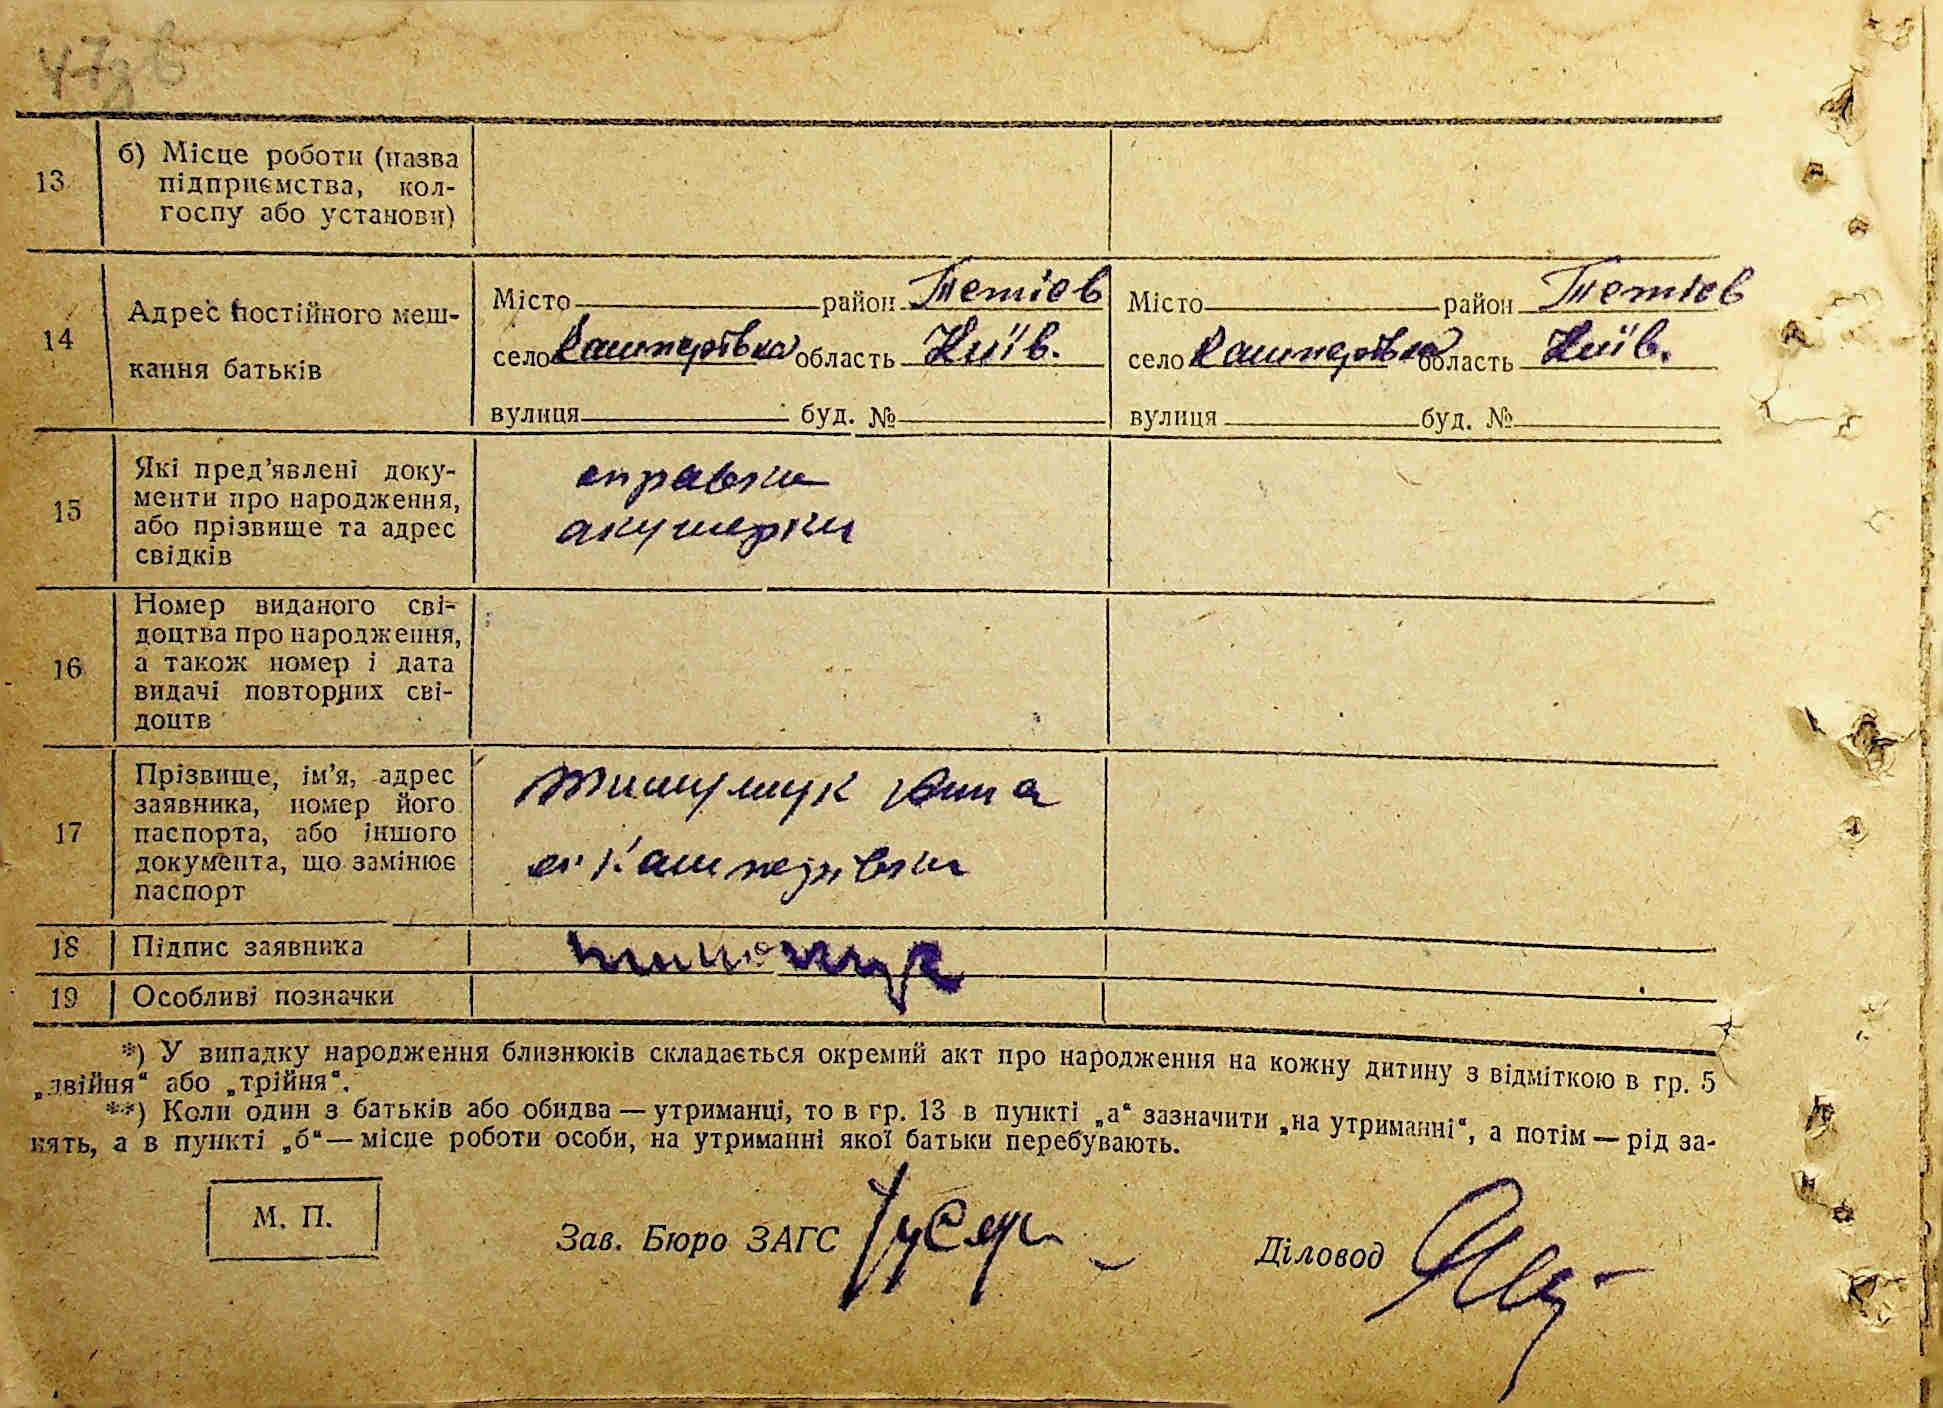 47зв
13
б) Місце роботи (назва
підприємства, кол-
госпу або установи)
14
Адрес постійного меш-
кання батьків
Місто район Тетіев
село Кашперівка область Київ.
вулиця буд. №
Місто район Тетіев
село Кашперівка область Київ.
вулиця буд. №
15
Які пред'явлені доку-
менти про народження,
або прізвище та адрес
свідків
справки
акушерки
16
Номер виданого сві-
доцтва про народження,
а також номер і дата
видачі повторних сві-
доцтв
17
Прізвище, ім'я, адрес
заявника, номер його
паспорта, або іншого
документа, що замінює
паспорт
с. Кашперівки
18
Підпис заявника
19
Особливі позначки
*) У випадку народження близнюків складається окремий акт про народження на кожну дитину з відміткою в гр. 5
„двійня“ або „трійня“.
**) Коли один з батьків або обидва — утриманці, то в гр. 13 в пункті „а“ зазначити „на утриманні“, а потім — рід за-
нять, а в пункті „б“ — місце роботи особи, на утриманні якої батьки перебувають.
М. П.
Зав. Бюро ЗАГС
Діловод